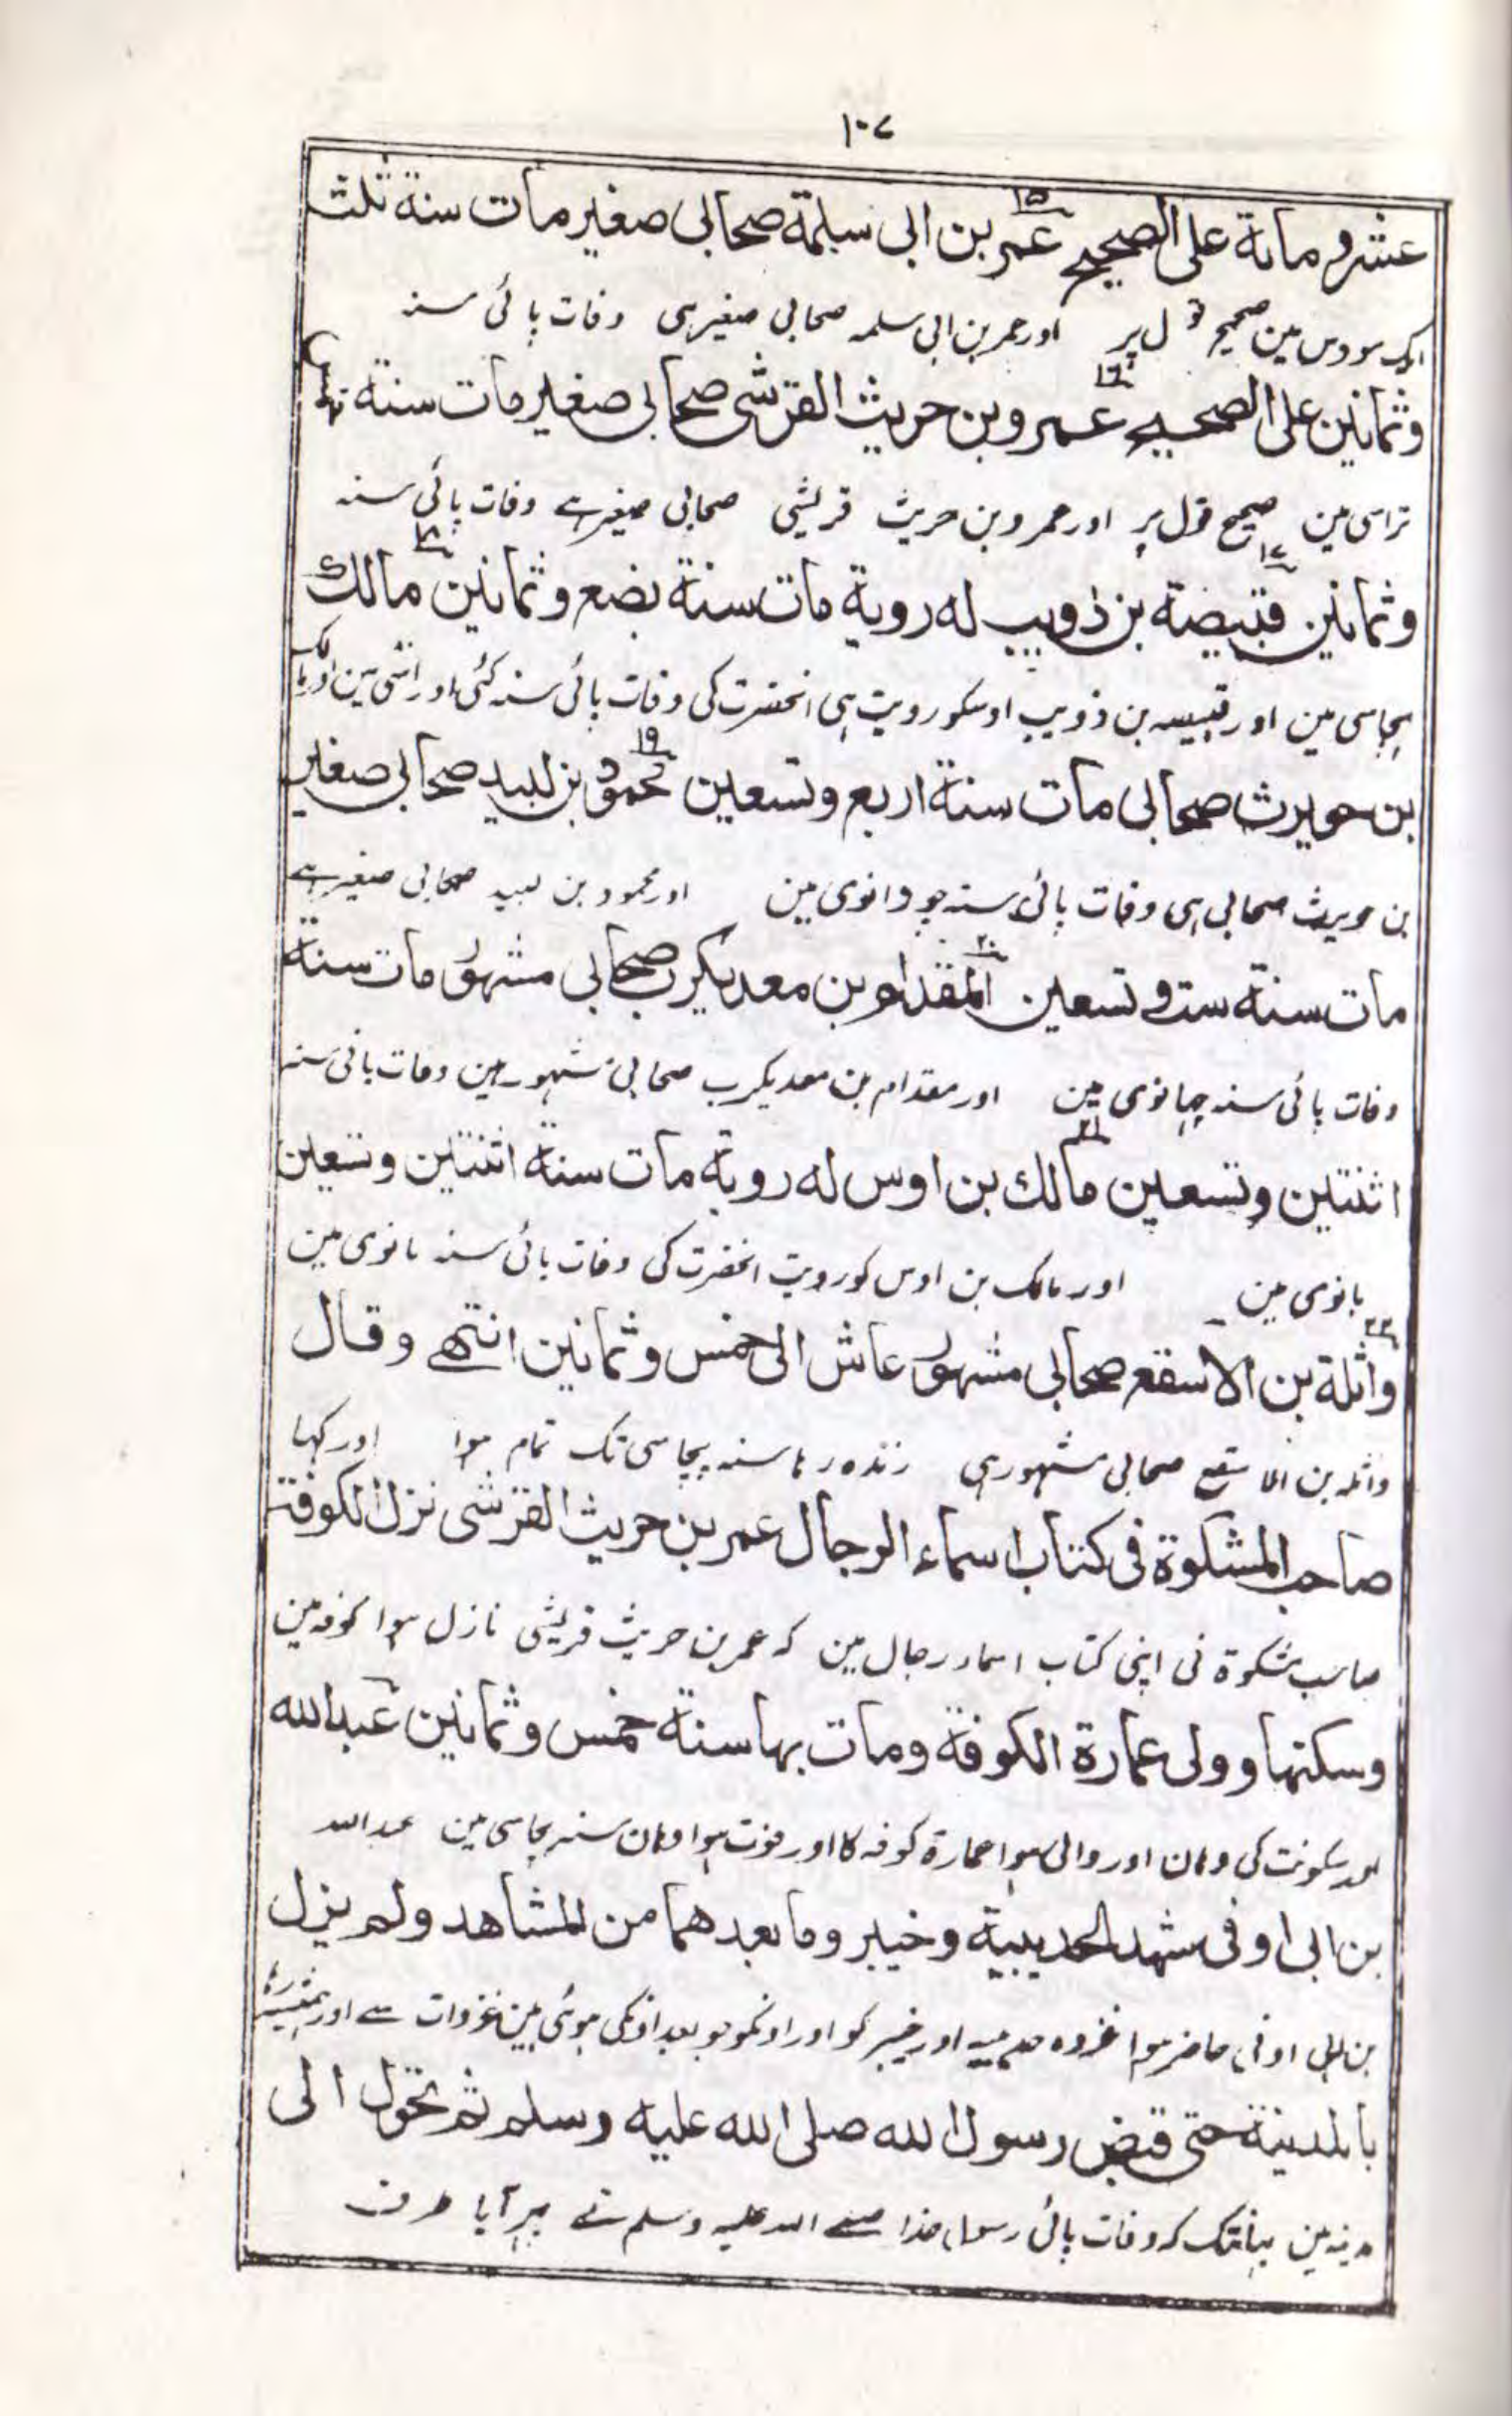 ۱۰۷
عشر ومائة على الصحيح ۱۵ عمر بن ابى سلمة صحابى صغير مات سنة ثلث
ایک سو دس مین صحیح قول پر اور عمر بن ابی سلمہ صحابی صغیر ہی وفات پائی سنہ
وثمانين على الصحيح ۱۶ عمرو بن حريث القرشى صحابى صغير مات سنة
تراسی مین صحیح قول پر اور عمرو بن حریث قریشی صحابی صغیر ہے وفات پائی سنہ
وثمانين ۱۷ قبيصة بن ذويب له روية مات سنة بضع وثمانين ۱۸ مالك
پچاسی مین اور قبیصہ بن ذویب اوسکو رویت ہی انحضرت کی وفات پائی سنہ کئی اور اسّی مین اور مالک
بن حويرث صحابى مات سنة اربع وتسعين ۱۹ محمود بن لبيد صحابى صغير
بن حویرث صحابی ہی وفات پائی سنہ چورانوی مین اور محمود بن لبید صحابی صغیر ہے
مات سنة ست وتسعين ۲۰ المقدام بن معديكرب صحابى مشهور مات سنة
وفات پائی سنہ چہیانوی مین اور مقدام بن معدیکرب صحابی مشہور ہین وفات پائی سنہ
اثنتين وتسعين ۲۱ مالك بن اوس له روية مات سنة اثنتين وتسعين
بانوی مین اور مالک بن اوس کو رویت انحضرت کی وفات پائی سنہ بانوی مین
۲۲ واثلة بن الاسقع صحابى مشهور عاش الى خمس وثمانين انتهے وقال
واثلہ بن الاسقع صحابی مشہور ہی زندہ رہا سنہ پچاسی تک تمام ہوا اور کہا
صاحب المشكوة فى كتاب اسماء الرجال عمر بن حريث القرشى نزل الكوفة
صاحب مشکوۃ نی اپنی کتاب اسماء رجال مین کہ عمر بن حریث قریشی نازل ہوا کوفہ مین
وسكنها وولى عمارة الكوفة ومات بها سنة خمس وثمانين عبدالله
اور سکونت کی وہان اور والی ہوا عمارۃ کوفہ کا اور فوت ہوا وہان سنہ پچاسی مین عبداللہ
بن ابى اوفى شهد الحديبية وخيبر وما بعدهما من المشاهد ولم يزل
بن ابی اوفی حاضر ہوا غزوہ حدیبیہ اور خیبر کو اور اونکو جو بعد اونکی ہوئی ہین غزوات سے اور ہمیشہ رہا
بالمدينة حتى قبض رسول الله صلى الله عليه وسلم ثم تحول الى
مدینہ مین یہانتک کہ وفات پائی رسول خدا صلے اللہ علیہ وسلم نے پہر آیا طرف